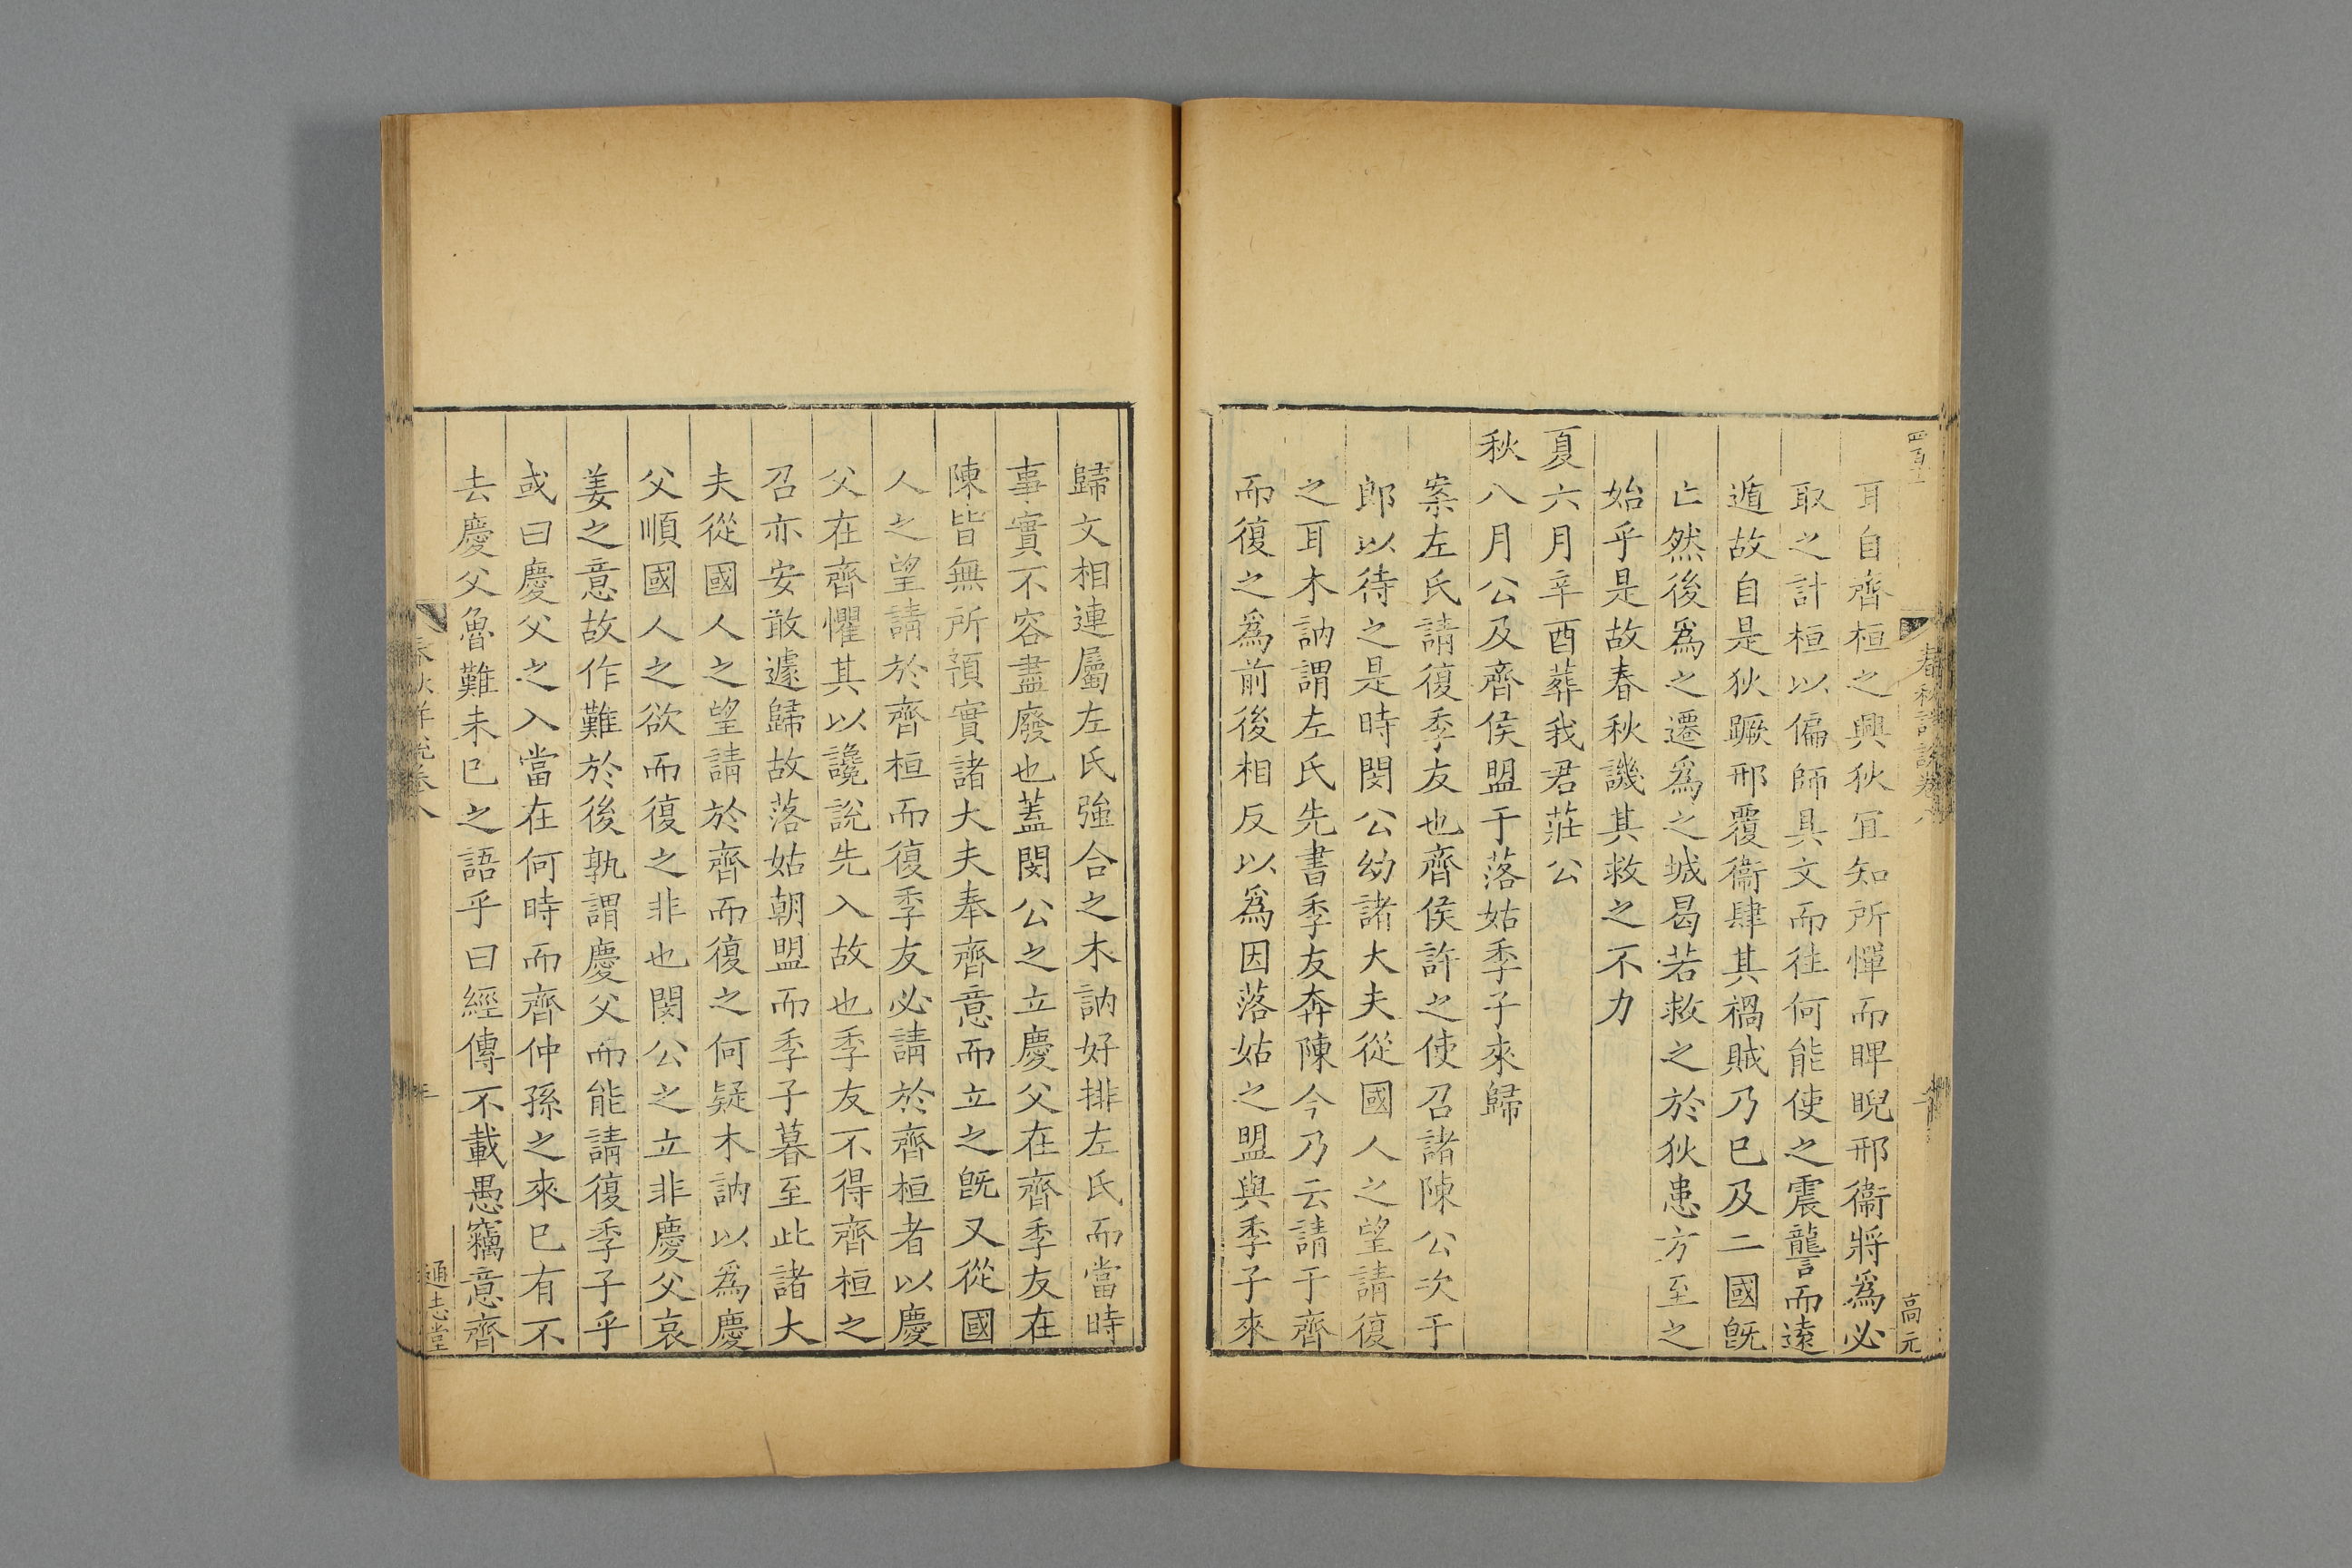 耳自齊桓之興狄宜知所憚而睥睨邢衞將爲必
取之計桓以偏師具文而往何能使之震讋而遠
遁故自是狄蹶邢覆衞肆其禍賊乃已及二國旣
亡然後爲之遷爲之城曷若救之於狄患方至之
始乎是故春秋譏其救之不力
夏六月辛酉葬我君莊公
秋八月公及齊侯盟于落姑季子來歸
案左氏請復季友也齊侯許之使召諸陳公次于
郎以待之是時閔公幼諸大夫從國人之望請復
之耳木訥謂左氏先書季友奔陳今乃云請于齊
而復之爲前後相反以爲因落姑之盟與季子來
高元
歸文相連屬左氏強合之木訥好排左氏而當時
事實不容盡廢也蓋閔公之立慶父在齊季友在
陳皆無所預實諸大夫奉齊意而立之旣又從國
人之望請於齊桓而復季友必請於齊桓者以慶
父在齊懼其以讒說先入故也季友不得齊桓之
召亦安敢遽歸故落姑朝盟而季子暮至此諸大
夫從國人之望請於齊而復之何疑木訥以爲慶
父順國人之欲而復之非也閔公之立非慶父哀
姜之意故作難於後孰謂慶父而能請復季子乎
或曰慶父之入當在何時而齊仲孫之來已有不
去慶父魯難未已之語乎曰經傳不載愚竊意齊
春秋詳說卷八
通志堂